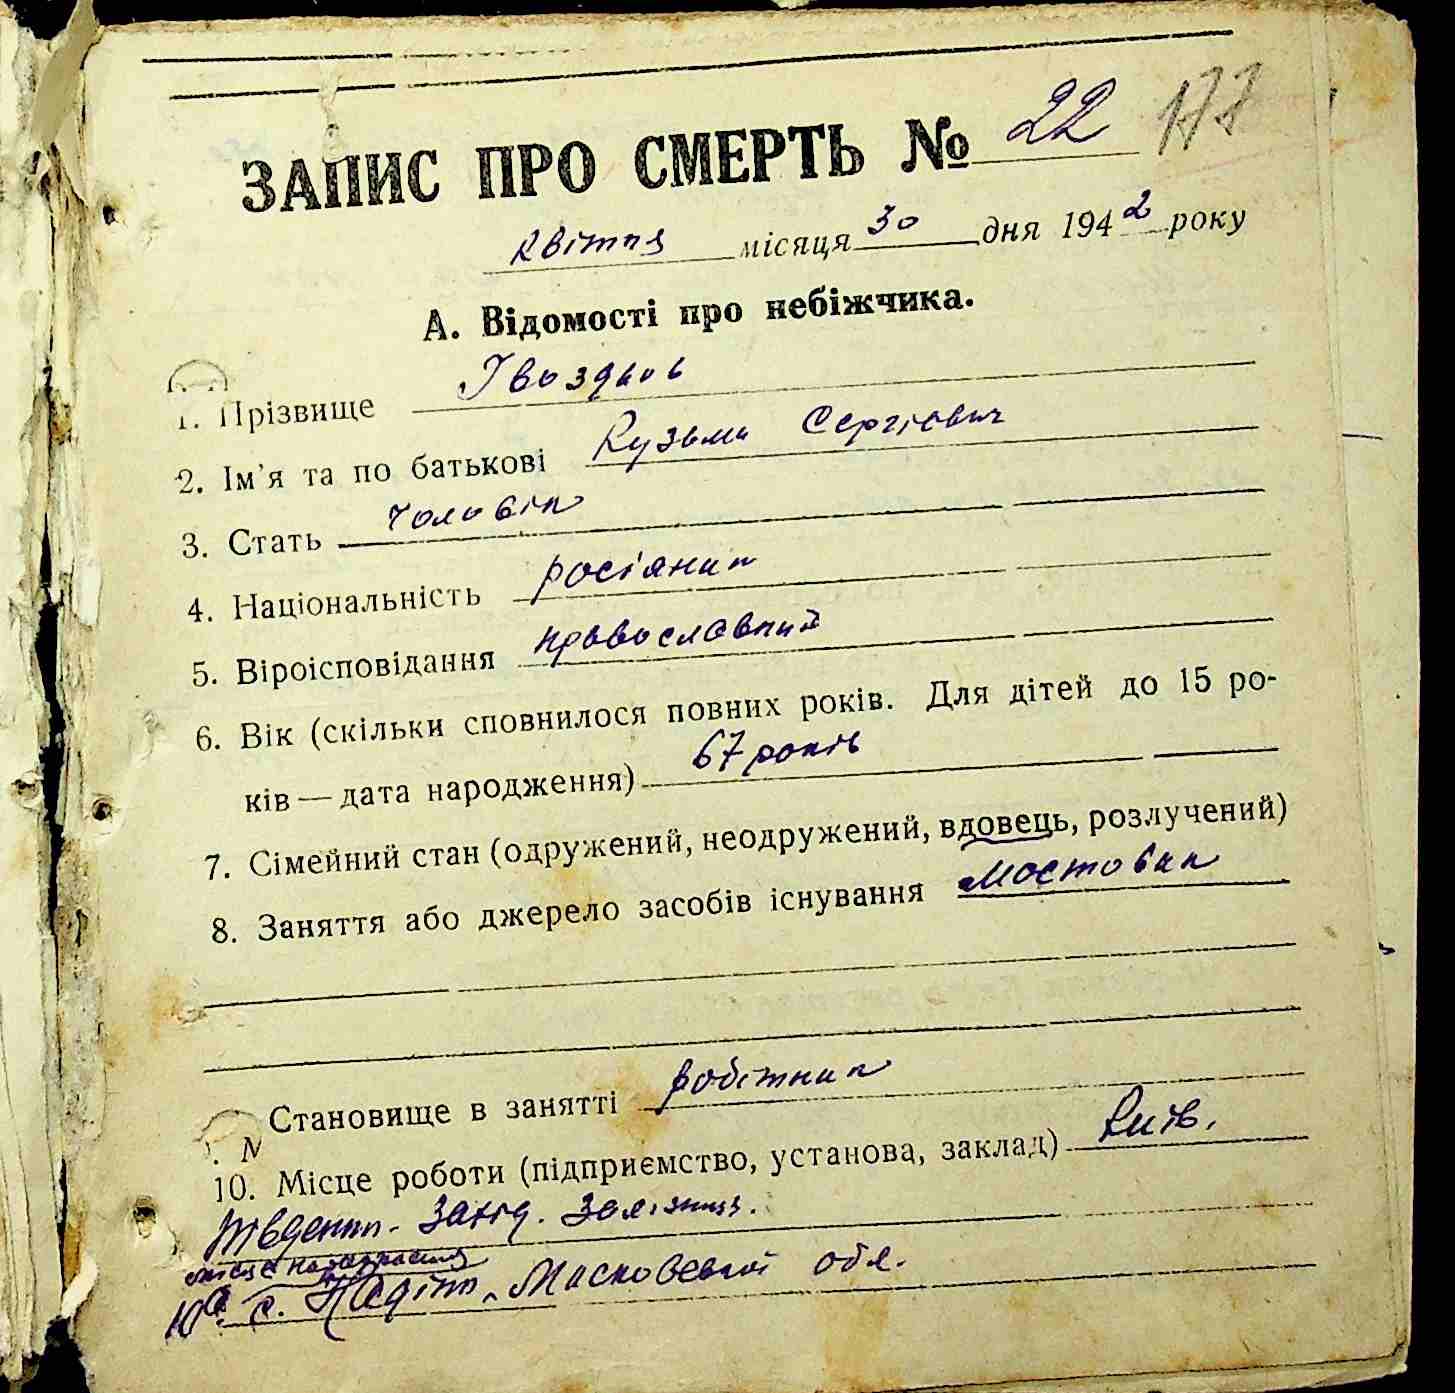 177
ЗАПИС ПРО СМЕРТЬ № 22
квітня місяця 30 дня 1942 року
А. Відомості про небіжчика.
1. Прізвище Гвоздьов
2. Ім'я та по батькові Кузьма Сергієвич
3. Стать чоловік
4. Національність росіянин
5. Віроісповідання православний
6. Вік (скільки сповнилося повних років. Для дітей до 15 ро-
ків — дата народження) 67 років
7. Сімейний стан (одружений, неодружений, вдовець, розлучений)
8. Заняття або джерело засобів існування мостовик
Становище в занятті робітник
10. Місце роботи (підприємство, установа, заклад) Київ.
Південн. Захід. Залізниця.
місце народження
10а. с. Московської обл.